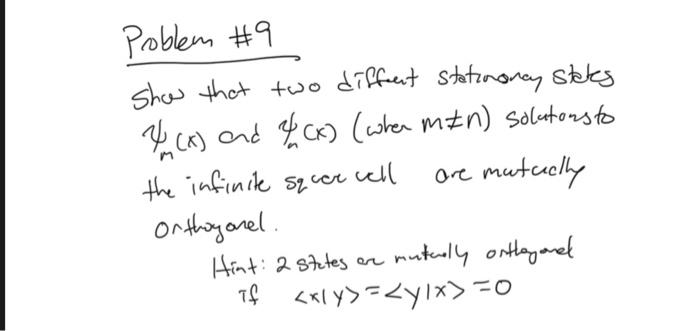 Problem #9
Show that two different stationary states
ψ_m(x) and ψ_n(x) (when m≠n) solutions to
the infinite square well are mutually
orthogonal.
Hint: 2 states are mutually orthogonal
if <x|y>=<y|x>=0